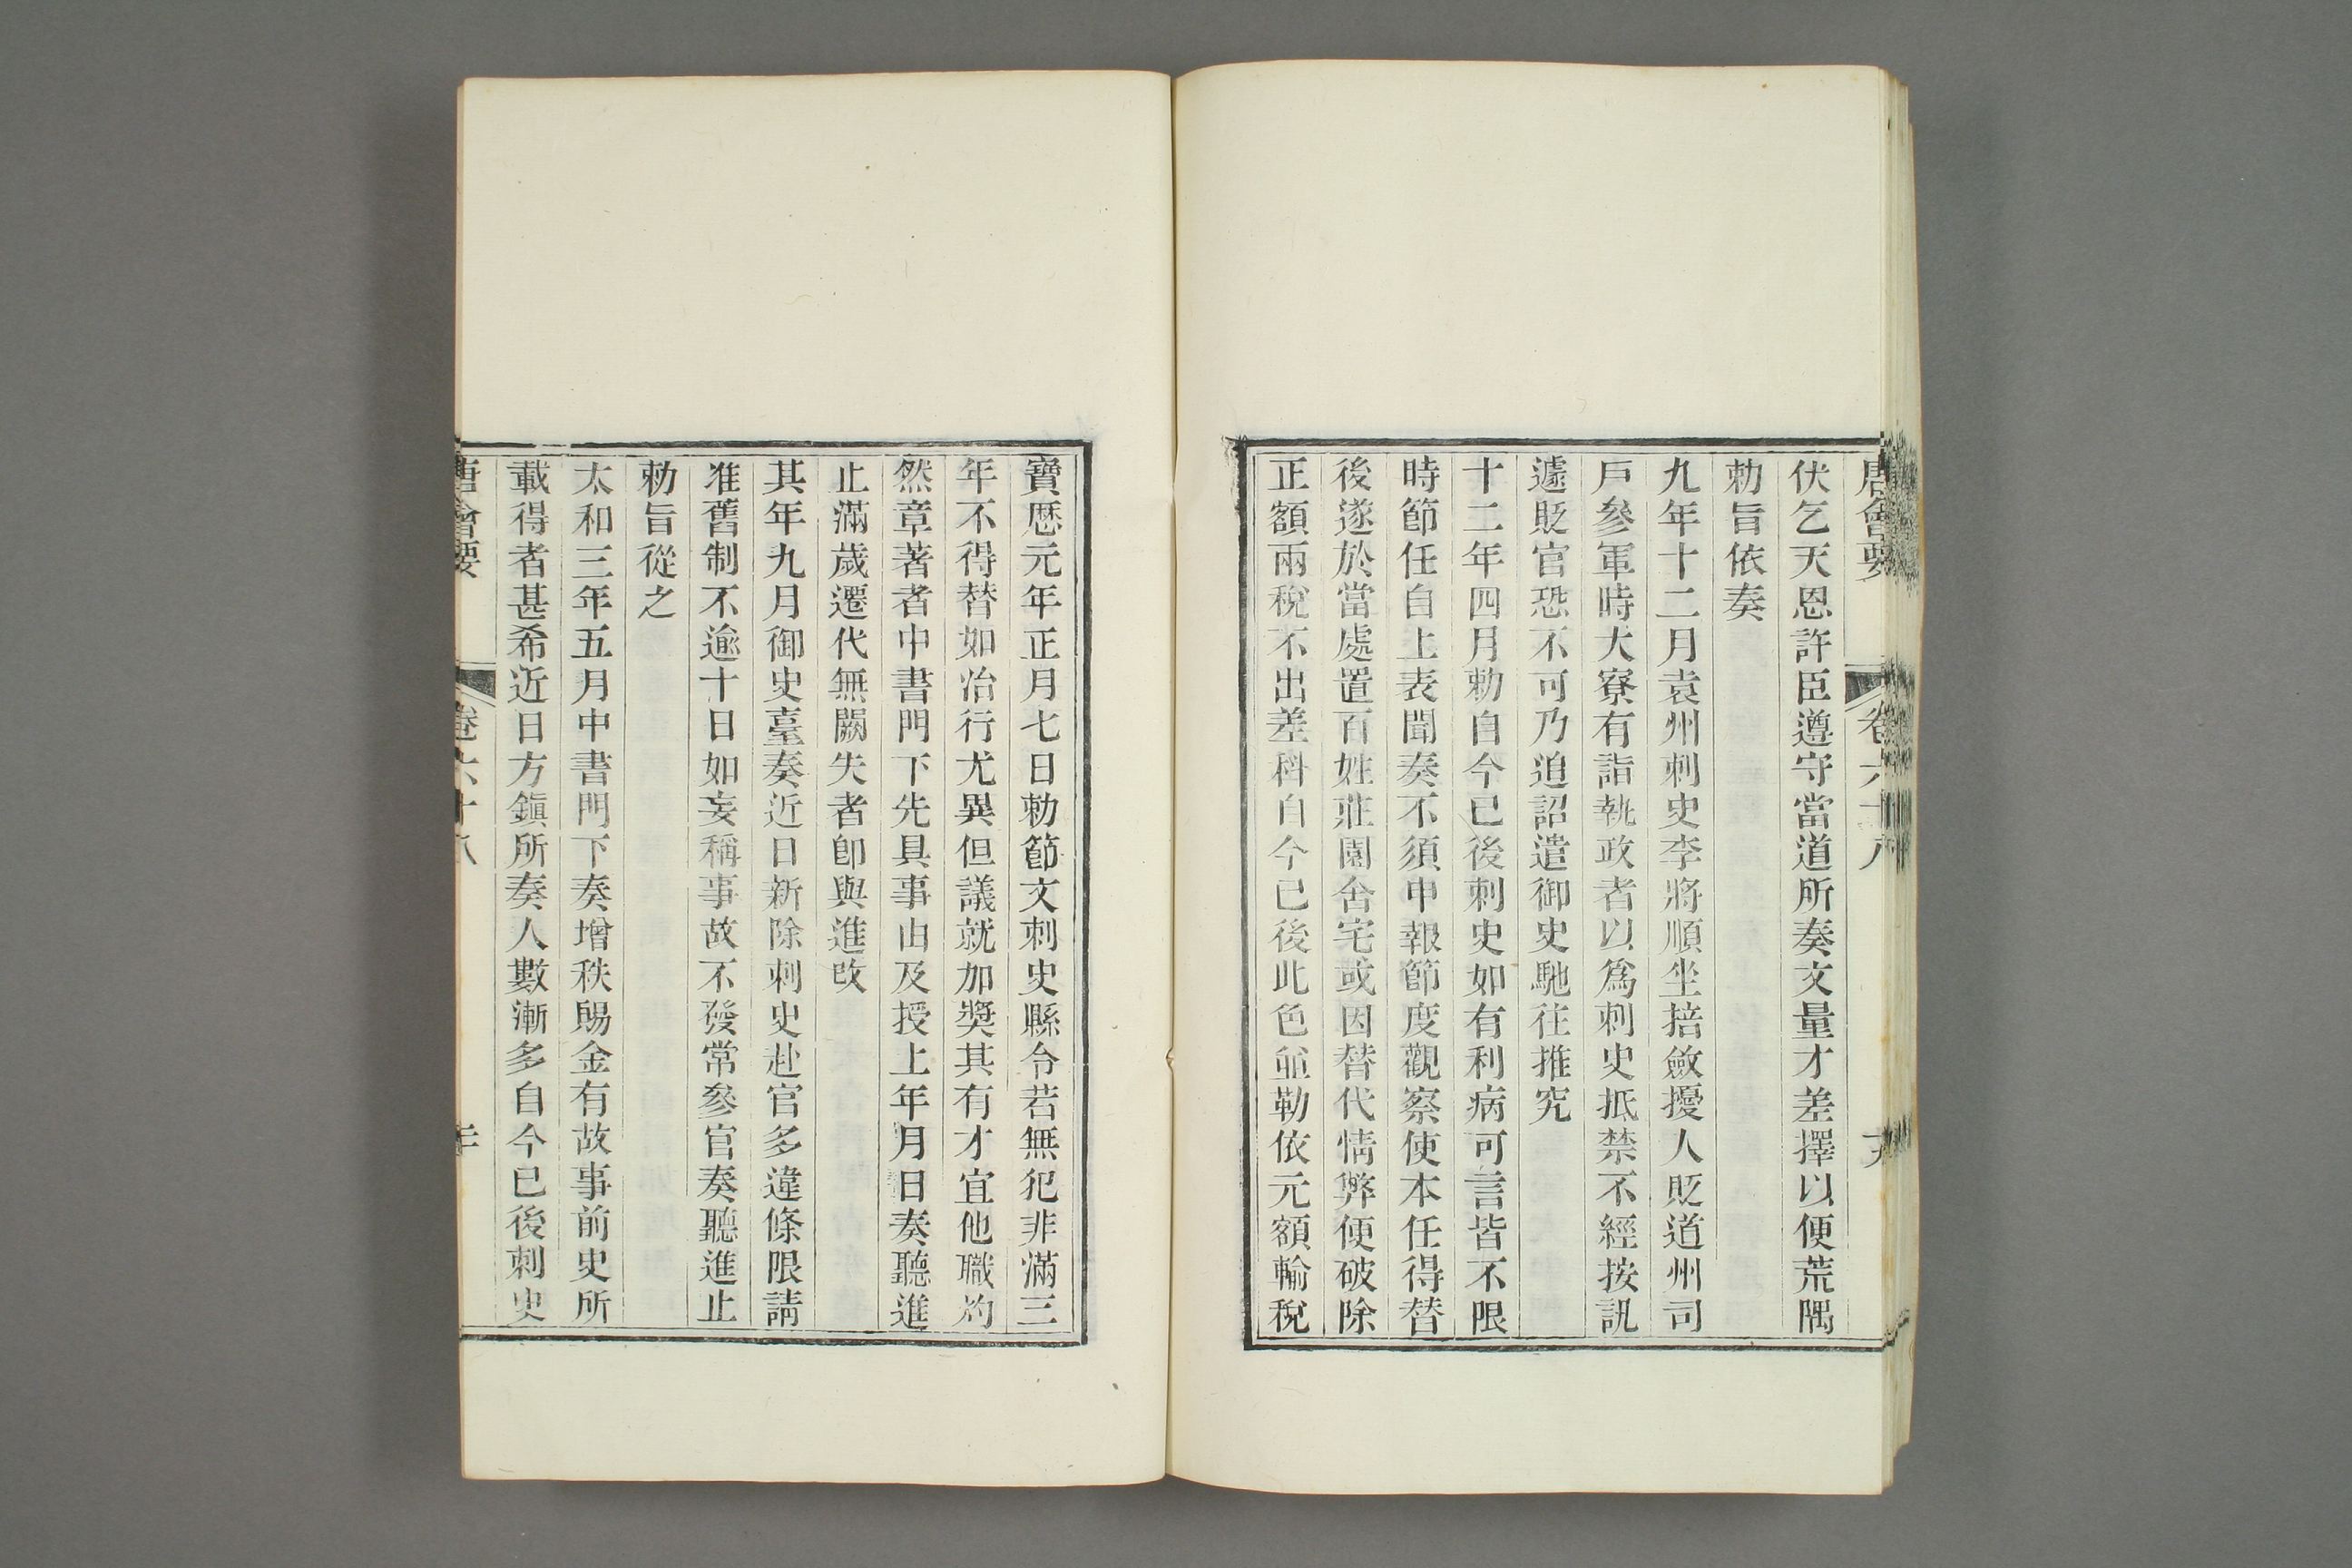 唐會要 卷六十八 十九
伏乞天恩許臣遵守當道所奏文量才差擇以便荒隅
勅旨依奏
九年十二月袁州刺史李將順坐掊斂擾人貶道州司
戶參軍時大寮有詣執政者以爲刺史抵禁不經按訊
遽貶官恐不可乃追詔遣御史馳往推究
十二年四月勅自今已後刺史如有利病可言皆不限
時節任自上表聞奏不須申報節度觀察使本任得替
後遂於當處置百姓莊園舍宅或因替代情弊便破除
正額兩稅不出差科自今已後此色並勒依元額輸稅
寶歷元年正月七日勅節文刺史縣令若無犯非滿三
年不得替如治行尤異但議就加獎其有才宜他職灼
然章著者中書門下先具事由及授上年月日奏聽進
止滿歲遷代無闕失者卽與進改
其年九月御史臺奏近日新除刺史赴官多違條限請
准舊制不逾十日如妄稱事故不發常參官奏聽進止
勅旨從之
太和三年五月中書門下奏增秩賜金有故事前史所
載得者甚希近日方鎭所奏人數漸多自今已後刺史
唐會要 卷六十八 二十